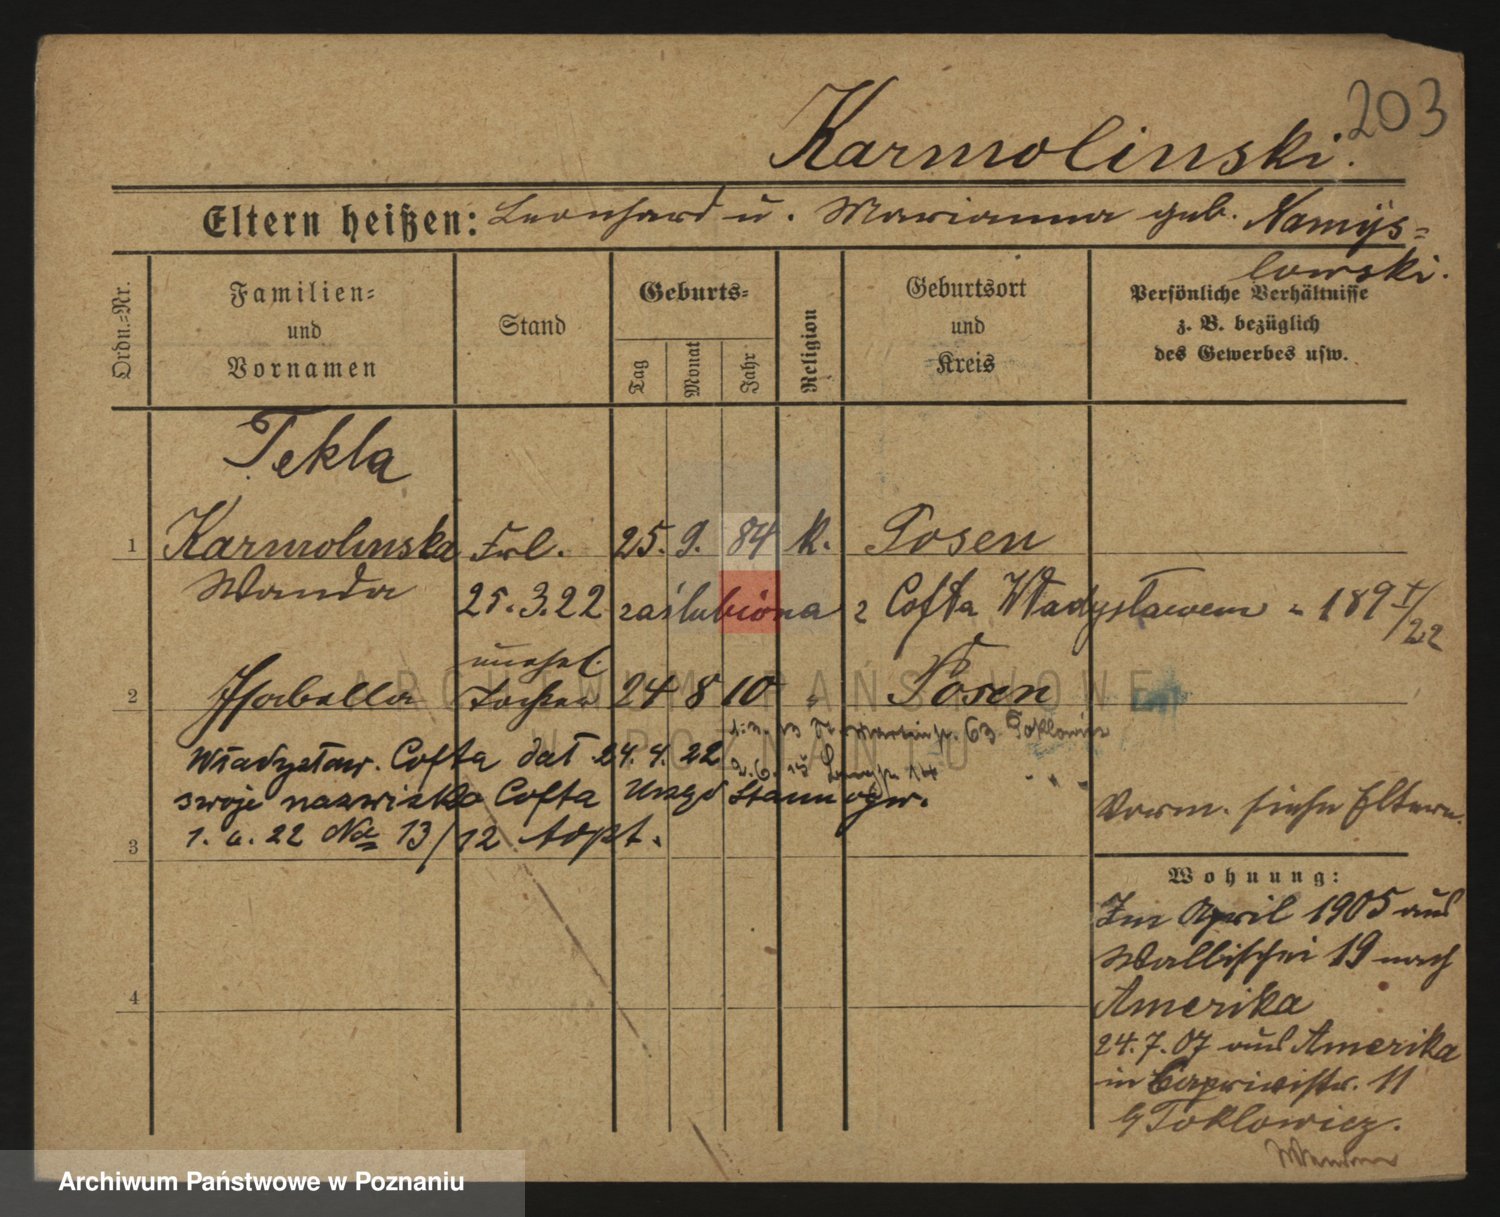 203
Karmolinski.
Eltern heißen: Leonhard u. Marianna geb. Namýs=
lowski.
Ordn.=Nr.
Familien=
und
Vornamen
Stand
Geburts=
Tag
Monat
Jahr
Religion
Geburtsort
und
Kreis
Persönliche Verhältnisse
z. B. bezüglich
des Gewerbes usw.
Tekla
1 Karmolinska Frl. 25. 9. 84 K. Posen
Wanda
25.3.22 zaślubiona z Cofta Władysławem = 189 I/22
unehel.
2 Isabella Tochter 24 8 10 " Posen
Władysław. Cofta dał 24.4.22
swoje nazwisko Cofta Urząd Stanu cyw.
1. 4. 22 No 13/12 Adpt.
63 Toklowicz
3
Vorm. siehe Eltern.
Wohnung:
Im April 1905 aus
Wallischei 19 nach
Amerika
24.7.07 aus Amerika
in Caprivistr. 11
b/ Toklowicz.
4
ARCHIWUM PAŃSTWOWE
W POZNANIU
Archiwum Państwowe w Poznaniu